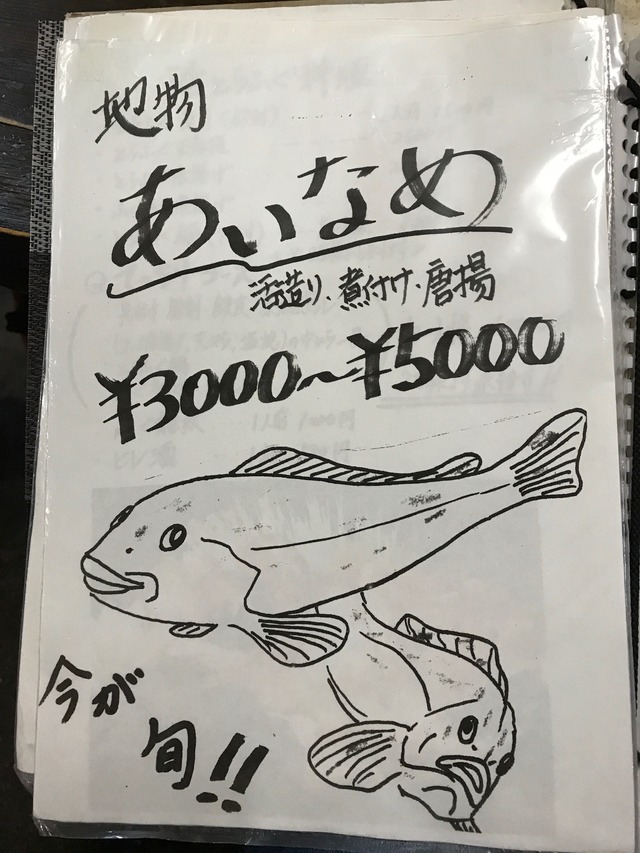 地物
あいなめ
活造り、煮付け・唐揚
¥3000~¥5000
今が
旬!!